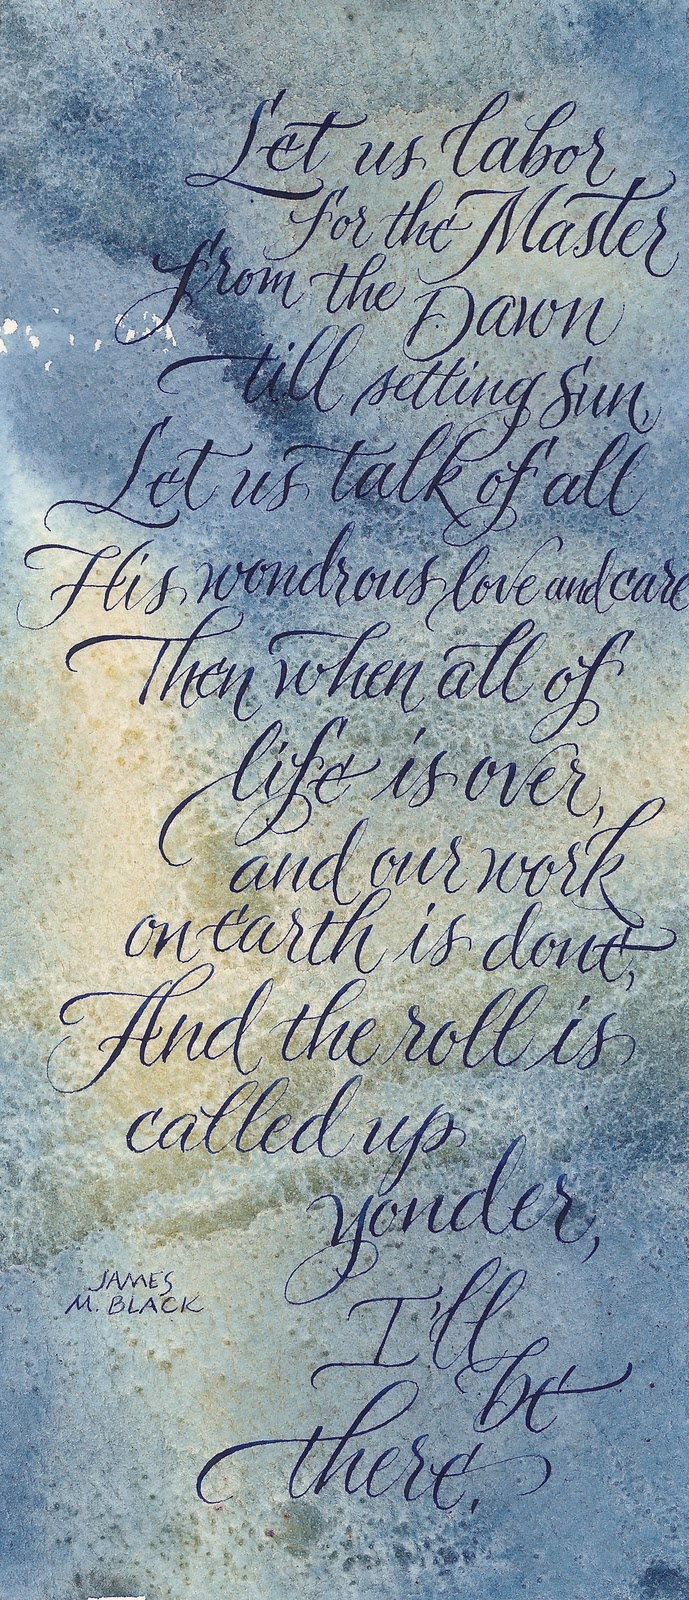 Let us labor
for the Master
from the Dawn
till setting sun,
Let us talk of all
His wondrous love and care
Then when all of
life is over,
and our work
on earth is done,
And the roll is
called up
yonder,
I'll
be
there.
JAMES
M. BLACK